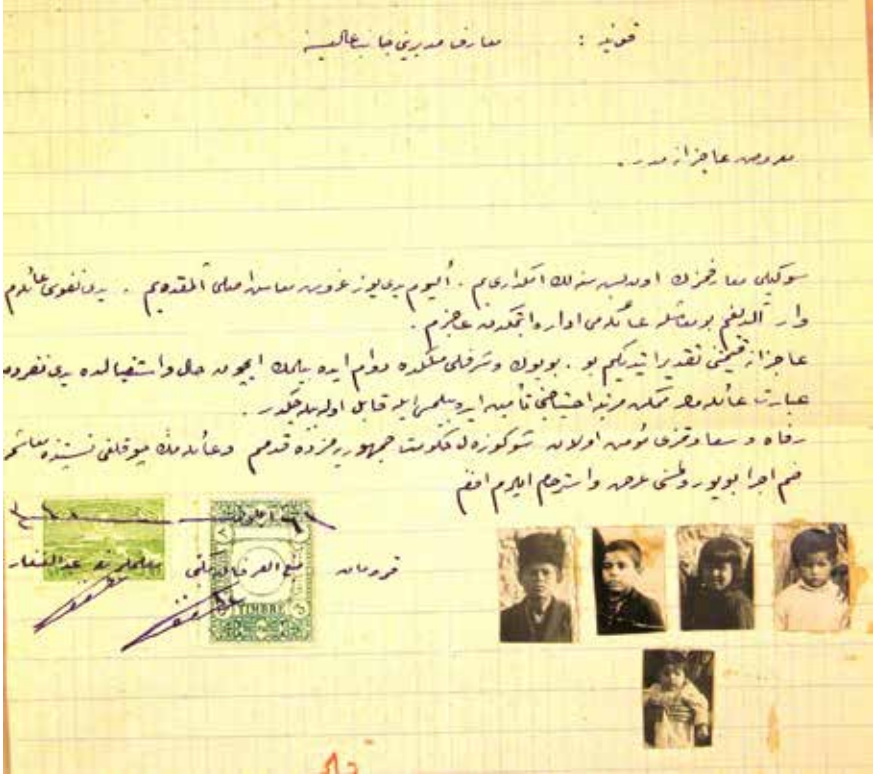 قونيه : معارف مديريتي جانب عاليسنه
معروض عاجزانه مدر .
سوكيلى معارفمزك اون بش سنه لك امكداري يم . اليوم يدى يوز غروش معاش اصلى آلمقده يم . يدى نفوسى عائله م
وار آلديغم بو معاشله عائله مى اداره ايتمكدن عاجزم .
عاجزانه قيمتنى تقدير ايتديكم بو بويوك وشرفلى مسلكده دوام ايده بيلمك ايچون حال واستقبالده يدى نفردن
عبارت عائله مك ممكن مرتبه احتياجنى تأمين ايده بيلمسى ايله قابل اوله بيله جكدر .
رفاه و سعادتمزى مؤمن اولان حكومت جمهوريه مزده قدمم وعائله مك نسبتنده معاشمه
ضم اجرا بويورولمسنى عرض واسترحام ايلرم افندم
قره مان
معلملرندن عبدالغفار
TIMBRE